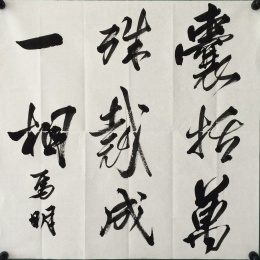 囊括萬
殊裁成
一相
馬明